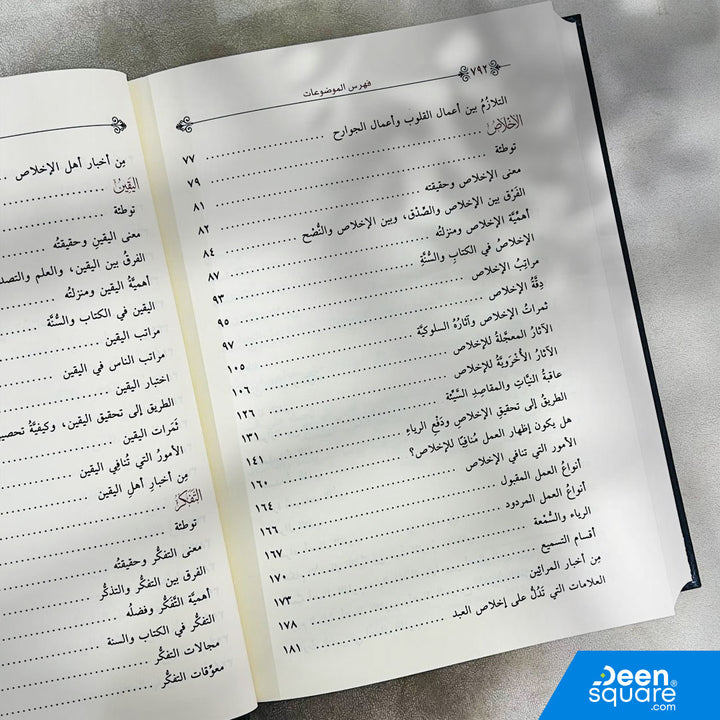 ٧٩٢
فهرس الموضوعات
التلازُمُ بين أعمال القلوب وأعمال الجوارح ٧٧
الإخلاص ٧٩
توطئة ٨١
معنى الإخلاص وحقيقته ٨٢
الفَرْق بين الإخلاص والصِّدْق، وبين الإخلاص والنُّصْح ٨٤
أهميَّة الإخلاص ومنزلته ٨٧
الإخلاصُ في الكتابِ والسُّنَّةِ ٩٣
مراتِبُ الإخلاص ٩٥
دِقَّةُ الإخلاص ٩٧
ثمراتُ الإخلاص وآثارُهُ السلوكيَّة ١٠٥
الآثارُ المعجَّلةُ للإخلاص ١٠٦
الآثارُ الأُخْرَويَّةُ للإخلاص ١٢٦
عاقبةُ النيَّاتِ والمقاصِدِ السَّيِّئَة ١٣١
الطريقُ إلى تحقيقِ الإخلاصِ ودَفْعِ الرياءِ ١٤١
هل يكون إظهار العمل مُنافِيًا للإخلاص؟ ١٦٠
الأمور التي تنافي الإخلاص ١٦٤
أنواعُ العمل المقبول ١٦٦
أنواعُ العمل المردود ١٦٧
الرياء والسُّمْعة ١٧٠
أقسام التسميع ١٧٣
مِن أخبار المرائين ١٧٨
العلامات التي تَدُلُّ على إخلاص العبد ١٨١
مِن أخبار أهل الإخلاص
اليَقين
توطئة
معنى اليقينِ وحقيقتُه
الفرقُ بين اليقين، والعلم والتصد
أهميةُ اليقين ومنزلتُه
اليقين في الكتاب والسُّنَّة
مراتب اليقين
مراتب الناس في اليقين
اختبار اليقين
الطريق إلى تحقيق اليقين، وكيفيَّةُ تحصي
ثَمَرات اليقين
الأمورُ التي تُنافِي اليقين
مِن أخبارِ أهلِ اليقين
التفكر
توطئة
معنى التفكُّر وحقيقته
الفرق بين التفكُّر والتذكُّر
أهميَّة التَّفكُّر وفضلُه
التفكُّر في الكتاب والسنة
مجالات التفكُّر
معوِّقات التفكُّر
Deen
square®
.com